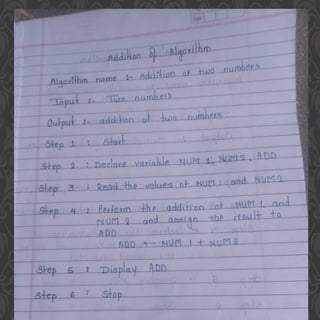 Addition of Algorithm
Algorithm name :- Addition of two numbers
Input :- Two numbers
Output :- addition of two numbers
Step 1 : Start
Step 2 : Declare variable NUM 1, NUM 2, ADD
Step 3 : Read the values of NUM 1 and NUM 2
Step 4 : Perform the addition of NUM 1 and
NUM 2 and assign the result to
ADD
ADD ← NUM 1 + NUM 2
Step 5 : Display ADD
Step 6 : Stop.